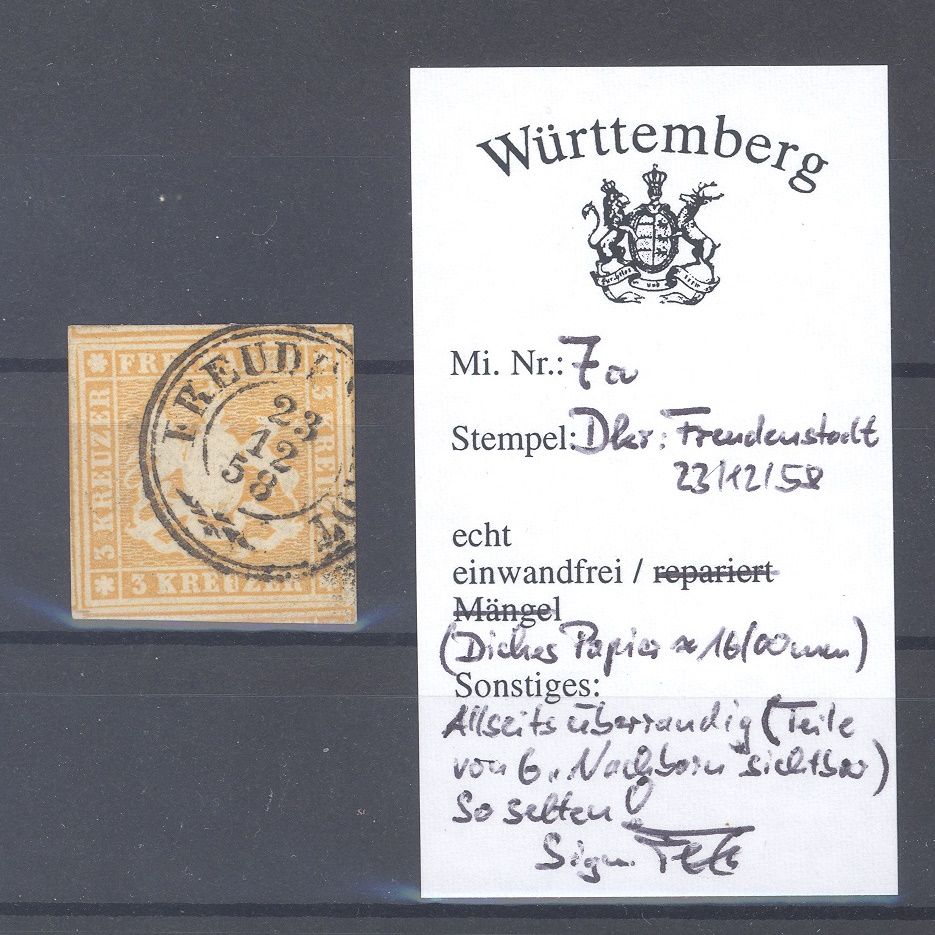 FRE
3 KREUZER
3 KREUZER
3 KREU
FREUD
23
12
58
Württemberg
furchtlos und trew
Mi. Nr.: 7a
Stempel: Dkr: Freudenstadt
23/12/58
echt
einwandfrei / repariert
Mängel
(Dickes Papier ≈ 16/00mm)
Sonstiges:
Allseits überrandig (Teile
von 6. Nachbarn sichtbar)
So selten!
Sign.